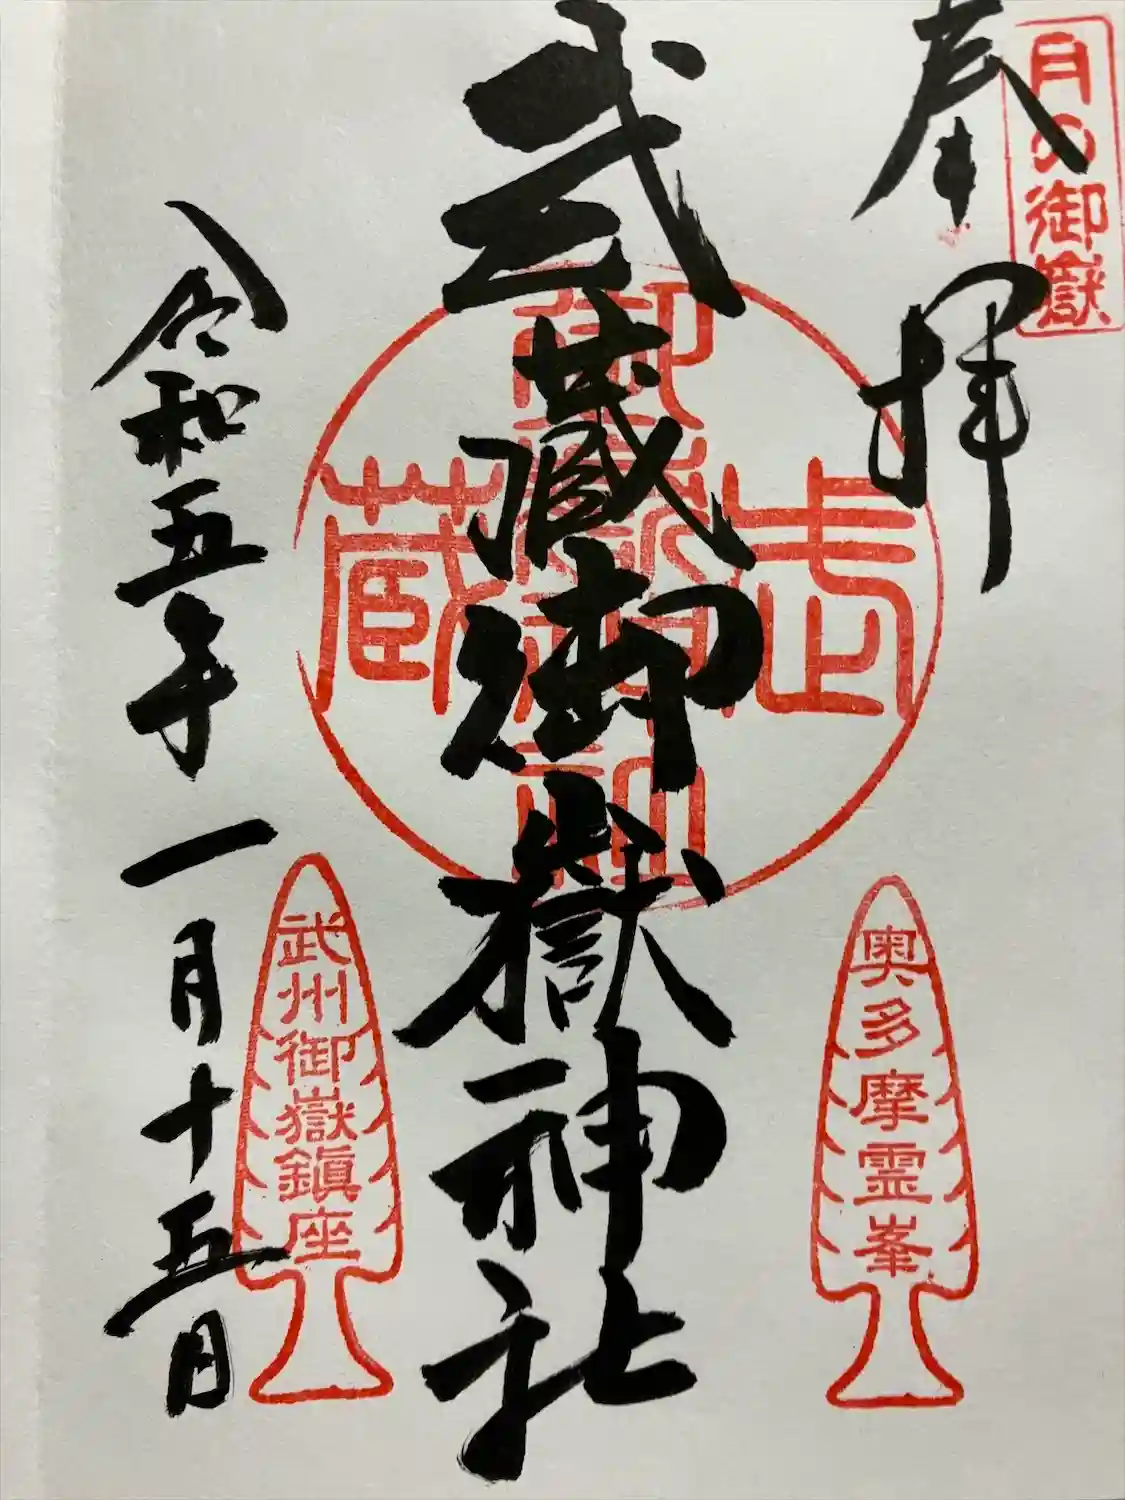 月の御嶽
奉拝
武蔵御嶽神社
武蔵
御嶽神社
奥多摩霊峯
武州御嶽鎮座
令和五年一月十五日